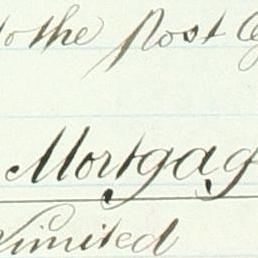 to the Post
Mortgag
Limited